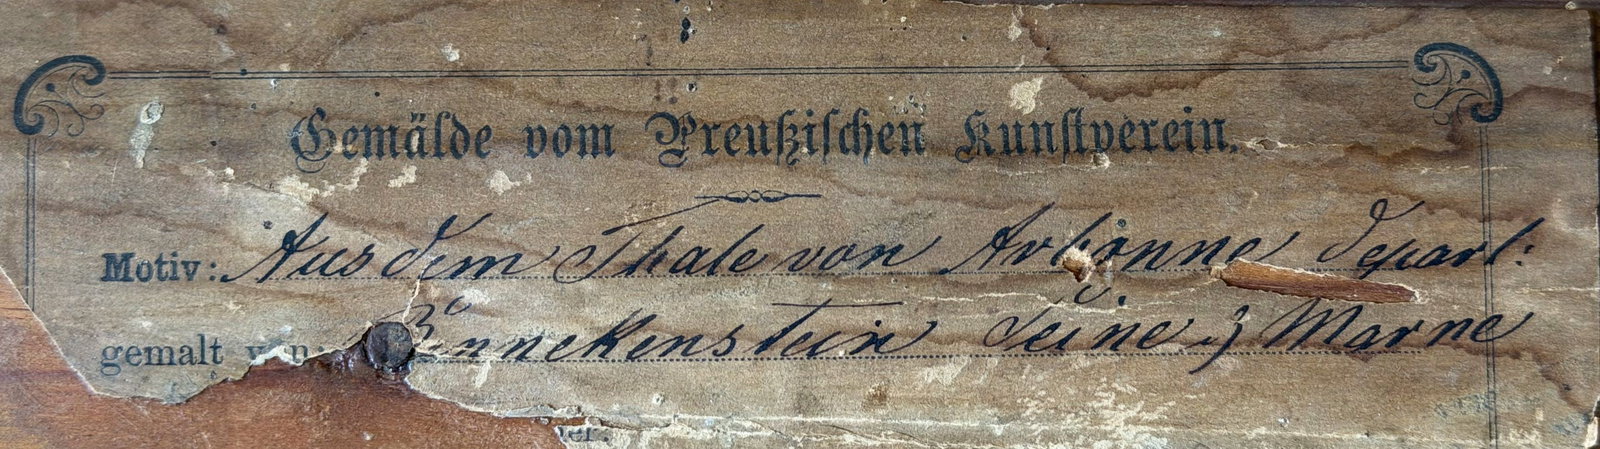 Gemälde vom Preußischen Kunstverein.
Motiv: Aus dem Thale von Arbonne depart:
gemalt von: Bönnekenstein Seine & Marne